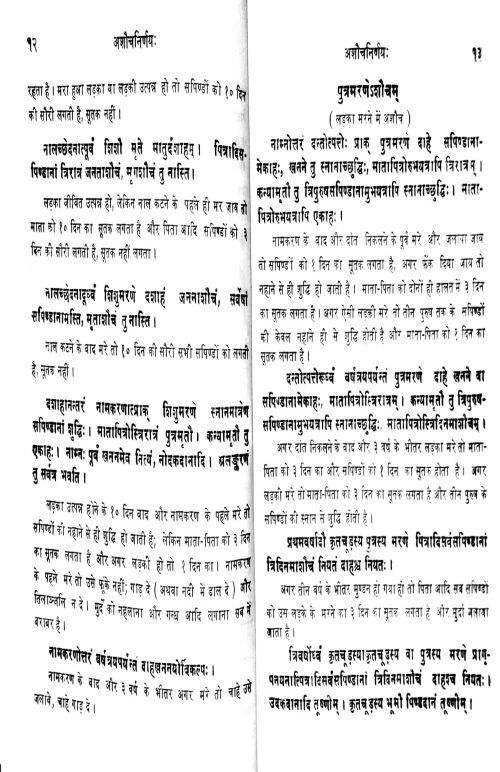 १२
अशौचनिर्णयः
रहता है। मरा हुआ लड़का या लड़की उत्पन्न हो तो सपिण्डों को १० दिन
की सौरी लगती है, सूतक नहीं।
नालच्छेदनात्पूर्वं शिशौ मृते मातुर्दशाहम्। पित्रादिस-
पिण्डानां त्रिरात्रं जननाशौचं, मृगशौचं तु नास्ति।
लड़का जीवित उत्पन्न हो, लेकिन नाल कटने के पहले ही मर जाय तो
माता को १० दिन का सूतक लगता है और पिता आदि सपिण्डों को ३
दिन की सौरी लगती है, सूतक नहीं लगता।
नालच्छेदनादूर्ध्वं शिशुमरणे दशाहं जननाशौचं, सर्वेषां
सपिण्डानामस्ति, मृताशौचं तु नास्ति।
नाल कटने के बाद मरे तो १० दिन की सौरी सभी सपिण्डों को लगती
है, सूतक नहीं।
दशाहानन्तरं नामकरणात्प्राक् शिशुमरणे स्नानमात्रेण
सपिण्डानां शुद्धिः। मातापित्रोस्त्रिरात्रं पुत्रमृतौ। कन्यामृतौ तु
एकाहः। नाम्नः पूर्वं खननमेव नित्यं, नोदकदानादि। अलङ्करणं
तु सर्वत्र भवति।
लड़का उत्पन्न होने के १० दिन बाद और नामकरण के पहले मरे तो
सपिण्डों की नहाने से ही शुद्धि हो जाती है; लेकिन माता-पिता को ३ दिन
का सूतक लगता है और अगर लड़की हो तो १ दिन का। नामकरण
के पहले मरे तो उसे फूके नहीं; गाड़ दे (अथवा नदी में डाल दे) और
तिलाञ्जलि न दे। मुर्दे को नहलाना और गन्ध आदि लगाना सब में
बराबर है।
नामकरणोत्तरं वर्षत्रयपर्यन्तं दाहखननयोर्विकल्पः।
नामकरण के बाद और ३ वर्ष के भीतर अगर मरे तो चाहे उसे
जलावे, चाहे गाड़ दे।
अशौचनिर्णयः
१३
पुत्रमरणेऽशौचम्
( लड़का मरने में अशौच )
नाम्नोत्तरं दन्तोत्पत्तेः प्राक् पुत्रमरणे दाहे सपिण्डाना-
मेकाहः, खनने तु स्नानाच्छुद्धिः, मातापित्रोरुभयत्रापि त्रिरात्रम्।
कन्यामृतौ तु त्रिपुरुषसपिण्डानामुभयत्रापि स्नानाच्छुद्धिः। माता-
पित्रोरुभयत्रापि एकाहः।
नामकरण के बाद और दांत निकलने के पूर्व मरे और जलाया जाय
तो सपिण्डों को १ दिन का सूतक लगता है, अगर फेंक दिया जाय तो
नहाने से ही शुद्धि हो जाती है। माता-पिता को दोनों ही हालत में ३ दिन
का सूतक लगता है। अगर ऐसी लड़की मरे तो तीन पुरुष तक के सपिण्डों
की केवल नहाने ही से शुद्धि होती है और माता-पिता को १ दिन का
सूतक लगता है।
दन्तोत्पत्तेरूर्ध्वं वर्षत्रयपर्यन्तं पुत्रमरणे दाहे खनने वा
सपिण्डानामेकाहः, मातापित्रोस्त्रिरात्रम्। कन्यामृतौ तु त्रिपुरुष-
सपिण्डानामुभयत्रापि स्नानाच्छुद्धिः, मातापित्रोस्त्रिदिनमाशौचम्।
अगर दांत निकलने के बाद और ३ वर्ष के भीतर लड़का मरे तो माता-
पिता को ३ दिन का और सपिण्डों को १ दिन का सूतक होता है। अगर
लड़की मरे तो माता-पिता को ३ दिन का सूतक लगता है और तीन पुरुष के
सपिण्डों की स्नान से शुद्धि होती है।
प्रथमवर्षादौ कृतचूड़स्य पुत्रस्य मरणे पित्रादिसर्वसपिण्डानां
त्रिदिनमाशौचं नियतं दाहश्च नियतः।
अगर तीन वर्ष के भीतर मुण्डन हो गया हो तो पिता आदि सब सपिण्डों
को उस लड़के के मरने का ३ दिन का सूतक लगता है और मुर्दा जलाया
जाता है।
त्रिवर्षोर्ध्वं कृतचूड़स्याकृतचूड़स्य वा पुत्रस्य मरणे प्रागु-
पनयनात्पित्रादिसर्वसपिण्डानां त्रिदिनमाशौचं दाहश्च नियतः।
उदकदानादि तूष्णीम्। कृतचूड़स्य भूमौ पिण्डदानं तूष्णीम्।